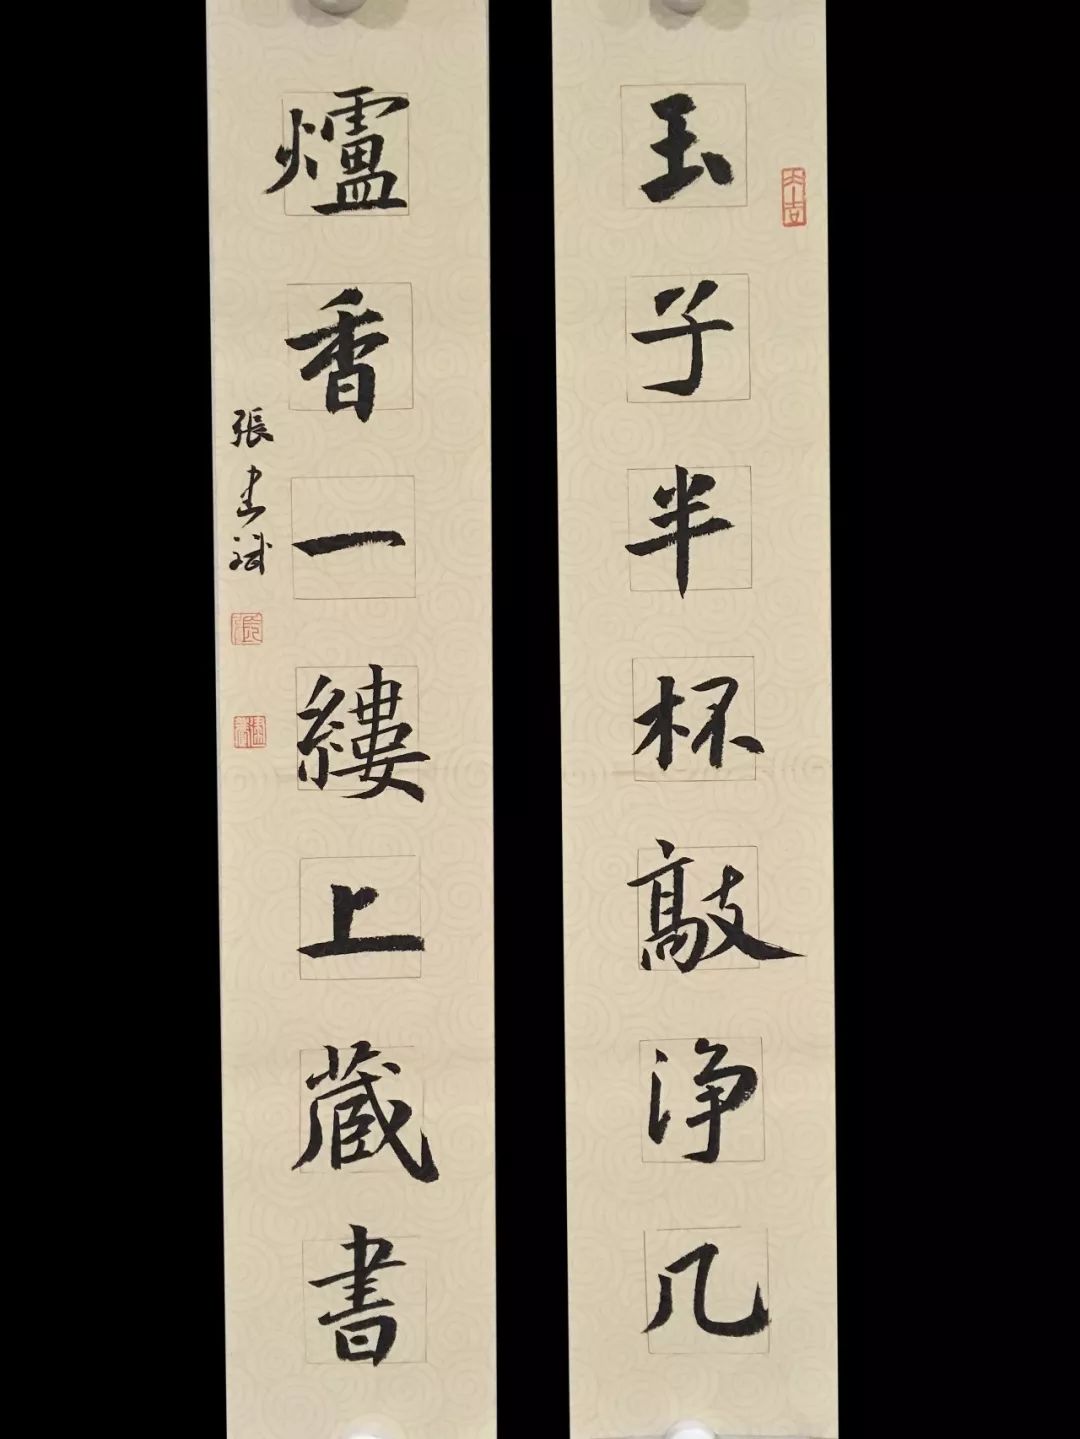 玉子半杯敲净几
爐香一縷上蔵書
張書斌